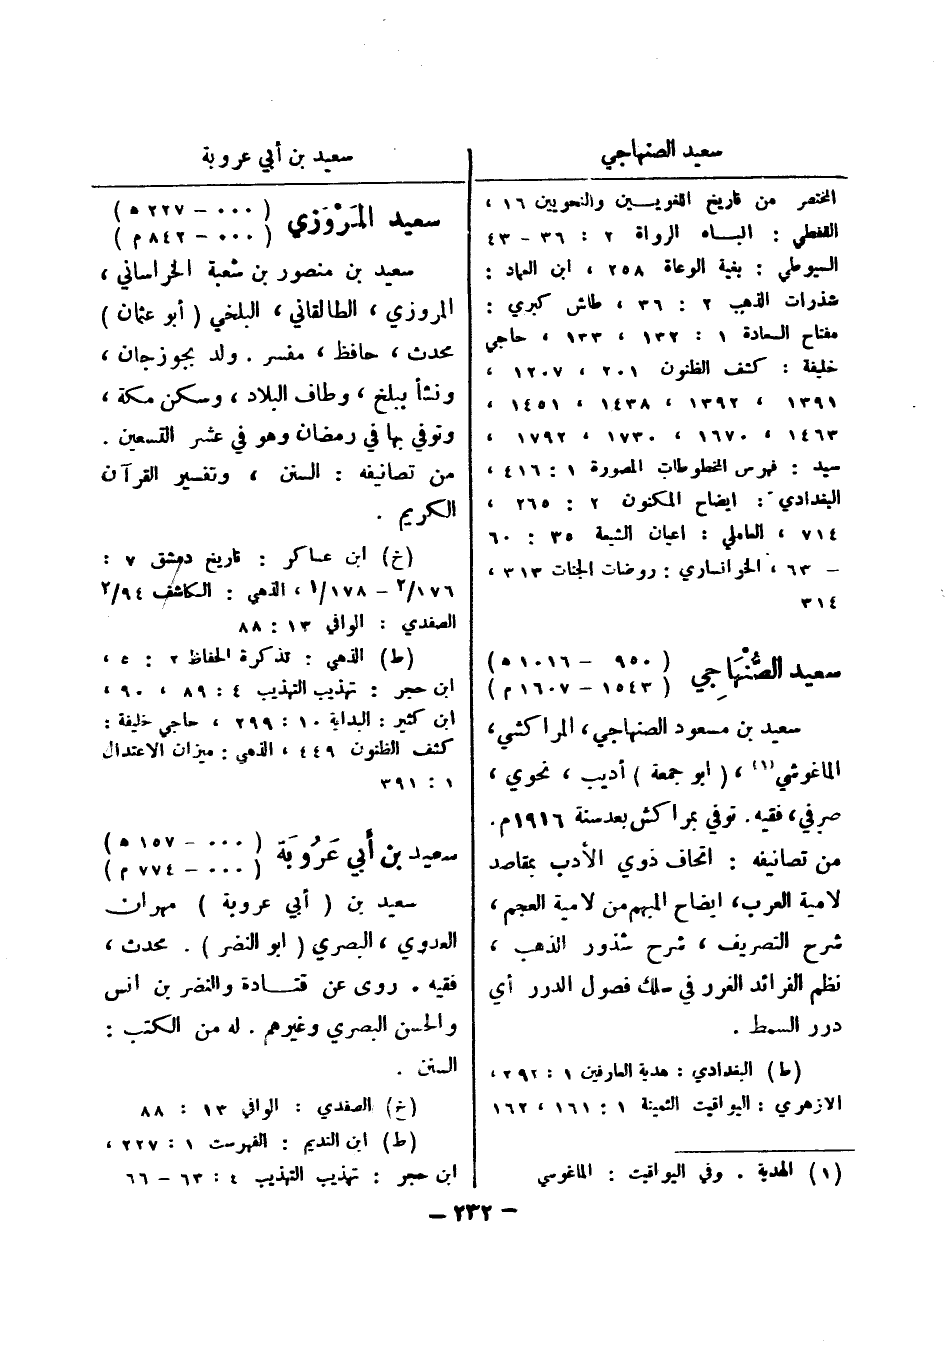 سعيد الصنهاجي
المختصر من تاريخ اللغويـــين والنحويين ١٦ ،
القفطي : انبــاه الرواة ٢ : ٣٦ - ٤٣
السيوطي : بغية الوعاة ٢٥٨ ، ابن العماد :
شذرات الذهب ٢ : ٣٦ ، طاش كبري :
مفتاح السعادة ١ : ١٣٢ ، ١٣٣ ، حاجي
خليفة : كشف الظنون ٢٠١ ، ١٢٠٧ ،
١٣٩١ ، ١٣٩٢ ، ١٤٣٨ ، ١٤٥١ ،
١٤٦٣ ، ١٦٧٠ ، ١٧٣٠ ، ١٧٩٢ ،
سيد : فهرس المخطوطات المصورة ١ : ٤١٦ ،
البغدادي : ايضاح المكنون ٢ : ٢٦٥ ،
٧١٤ ، العاملي : اعيان الشيعة ٣٥ : ٦٠
- ٦٣ ، الخوانساري : روضات الجنات ٣١٣ ،
٣١٤
سعيد الصُّنْهَاجِي ( ٩٥٠ - ١٠١٦ ه )
( ١٥٤٣ - ١٦٠٧ م )
سعيد بن مسعود الصنهاجي ، المراكشي ،
الماغوشي (١) ، ( ابو جمعة ) أديب ، نحوي ،
صرفي ، فقيه . توفي بمراكش بعد سنة ١٩١٦ م .
من تصانيفه : اتحاف ذوي الأدب بمقاصد
لامية العرب ، ايضاح المبهم من لامية العجم ،
شرح التصريف ، شرح شذور الذهب ،
نظم الفرائد الغرر في سلك فصول الدرر أي
درر السمط .
(ط) البغدادي : هدية العارفين ١ : ٢٩٢ ،
الازهري : اليواقيت الثمينة ١ : ١٦١ ، ١٦٢
(١) الهدية . وفي اليواقيت : الماغوسي
سعيد بن أبي عروبة
سعيد المَرْوَزي ( ٠٠٠ - ٢٢٧ ه )
( ٠٠٠ - ٨٤٢ م )
سعيد بن منصور بن شعبة الخراساني ،
المروزي ، الطالقاني ، البلخي ( أبو عثمان )
محدث ، حافظ ، مفسر . ولد بجوزجان ،
ونشأ ببلخ ، وطاف البلاد ، وسكن مكة ،
وتوفي بها في رمضان وهو في عشر التسعين .
من تصانيفه : السنن ، وتفسير القرآن
الكريم .
(خ) ابن عساكر : تاريخ دمشق ٧ :
١٧٦/٢ - ١٧٨/١ ، الذهبي : الكاشف ٩٤/٢
الصفدي : الوافي ١٣ : ٨٨
(ط) الذهبي : تذكرة الحفاظ ٢ : ٥ ،
ابن حجر : تهذيب التهذيب ٤ : ٨٩ ، ٩٠ ،
ابن كثير : البداية ١٠ : ٢٩٩ ، حاجي خليفة :
كشف الظنون ٤٤٩ ، الذهبي : ميزان الاعتدال
١ : ٣٩١
سعيد بن أَبي عَرُوبَة ( ٠٠٠ - ١٥٧ ه )
( ٠٠٠ - ٧٧٤ م )
سعيد بن ( أبي عروبة ) مهران
العدوي ، البصري ( ابو النضر ) . محدث ،
فقيه . روى عن قتــادة والنضر بن انس
والحسن البصري وغيرهم . له من الكتب :
السنن .
(خ) الصفدي : الوافي ١٣ : ٨٨
(ط) ابن النديم : الفهرست ١ : ٢٢٧ ،
ابن حجر : تهذيب التهذيب ٤ : ٦٣ - ٦٦
- ٢٣٢ -